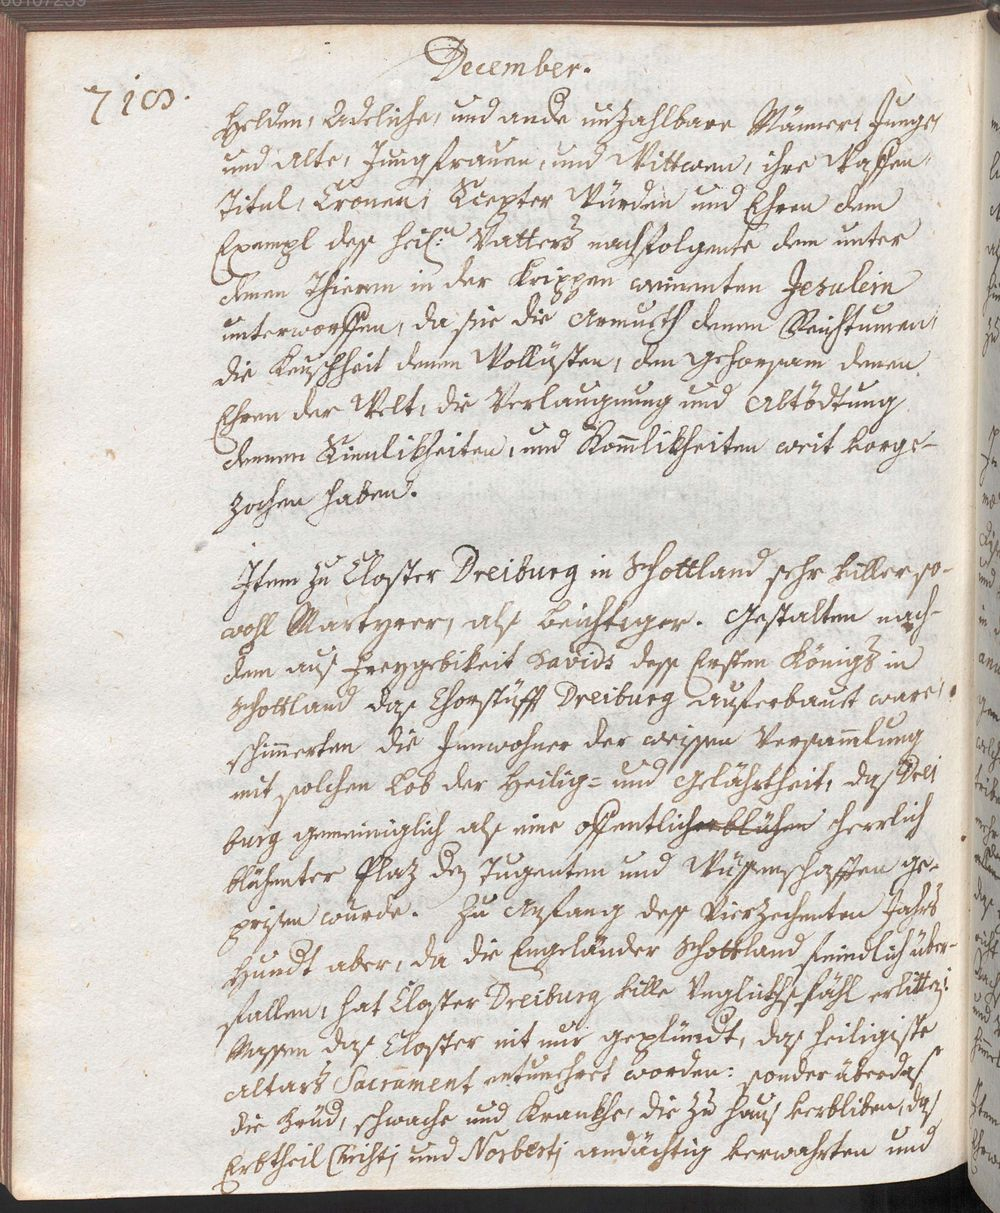 December.
718.
Helden, Adeliche, und ande unzahlbare Männer, Junge,
und Alte, Jungfrauen, und Wittwen, ihre Waffen,
Titul, Cronen, Scepter Würden und Ehren dem
Exempl deß heil: Vatters nachfolgente dem unter
denen Thieren in der Krippen weinenten Jesulein
unterworffen, da sie die Armueth denen Reichtumen,
die Keuschheit denen Wollüsten, den Gehorsam denen
Ehren der Welt, die Verlaugnung und Abtödtung
denen Zierlikheiten, und Komlikheiten weit vorge-
zochen haben.
Item zu Closter Dreiburg in Schottland sehr viller so-
wohl Martyrer, als Beichtiger. Gestalten nach-
dem aus Freygebikeit Davids deß Ersten Königs in
Schottland das Chorstüfft Dreiburg auferbaut ware,
schimmerten die Innwohner der weissen Versamlung
mit solchen Lob der Heilig- und Gelährtheit, das Drei
burg gemeiniglich als eine offentlich erblühen herrlich
blühenter Plaz der Tugenten und Wüssenschafften ge-
prisen wurde. Zu Anfang deß Vierzechenten Jahrs
Hundt aber, da die Engeländer Schottland feindlich über-
fallen, hat Closter Dreiburg ville Unglückhsfähl erlitten:
Massen das Closter nit nur geplündt, das heiligiste
Altars Sacrament entunehret worden: sonder überdas
die Brüd, schwache und Krankhe, die zu Haus verbliben, das
Erbtheil Christj und Norbertj andächtig verwahrten und